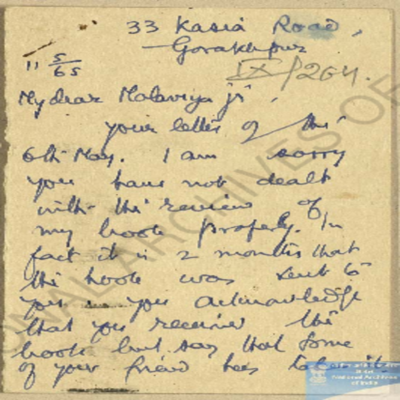 33 Kasia Road,
Gorakhpur
11 5/65
IX/264.
My dear Malaviya ji,
your letter of the
6th May. I am sorry
you have not dealt
with the review of
my book properly. In
fact it is 2 months that
the book was sent to
you you acknowledge
that you received the
book but say that some
of your friend has taken it